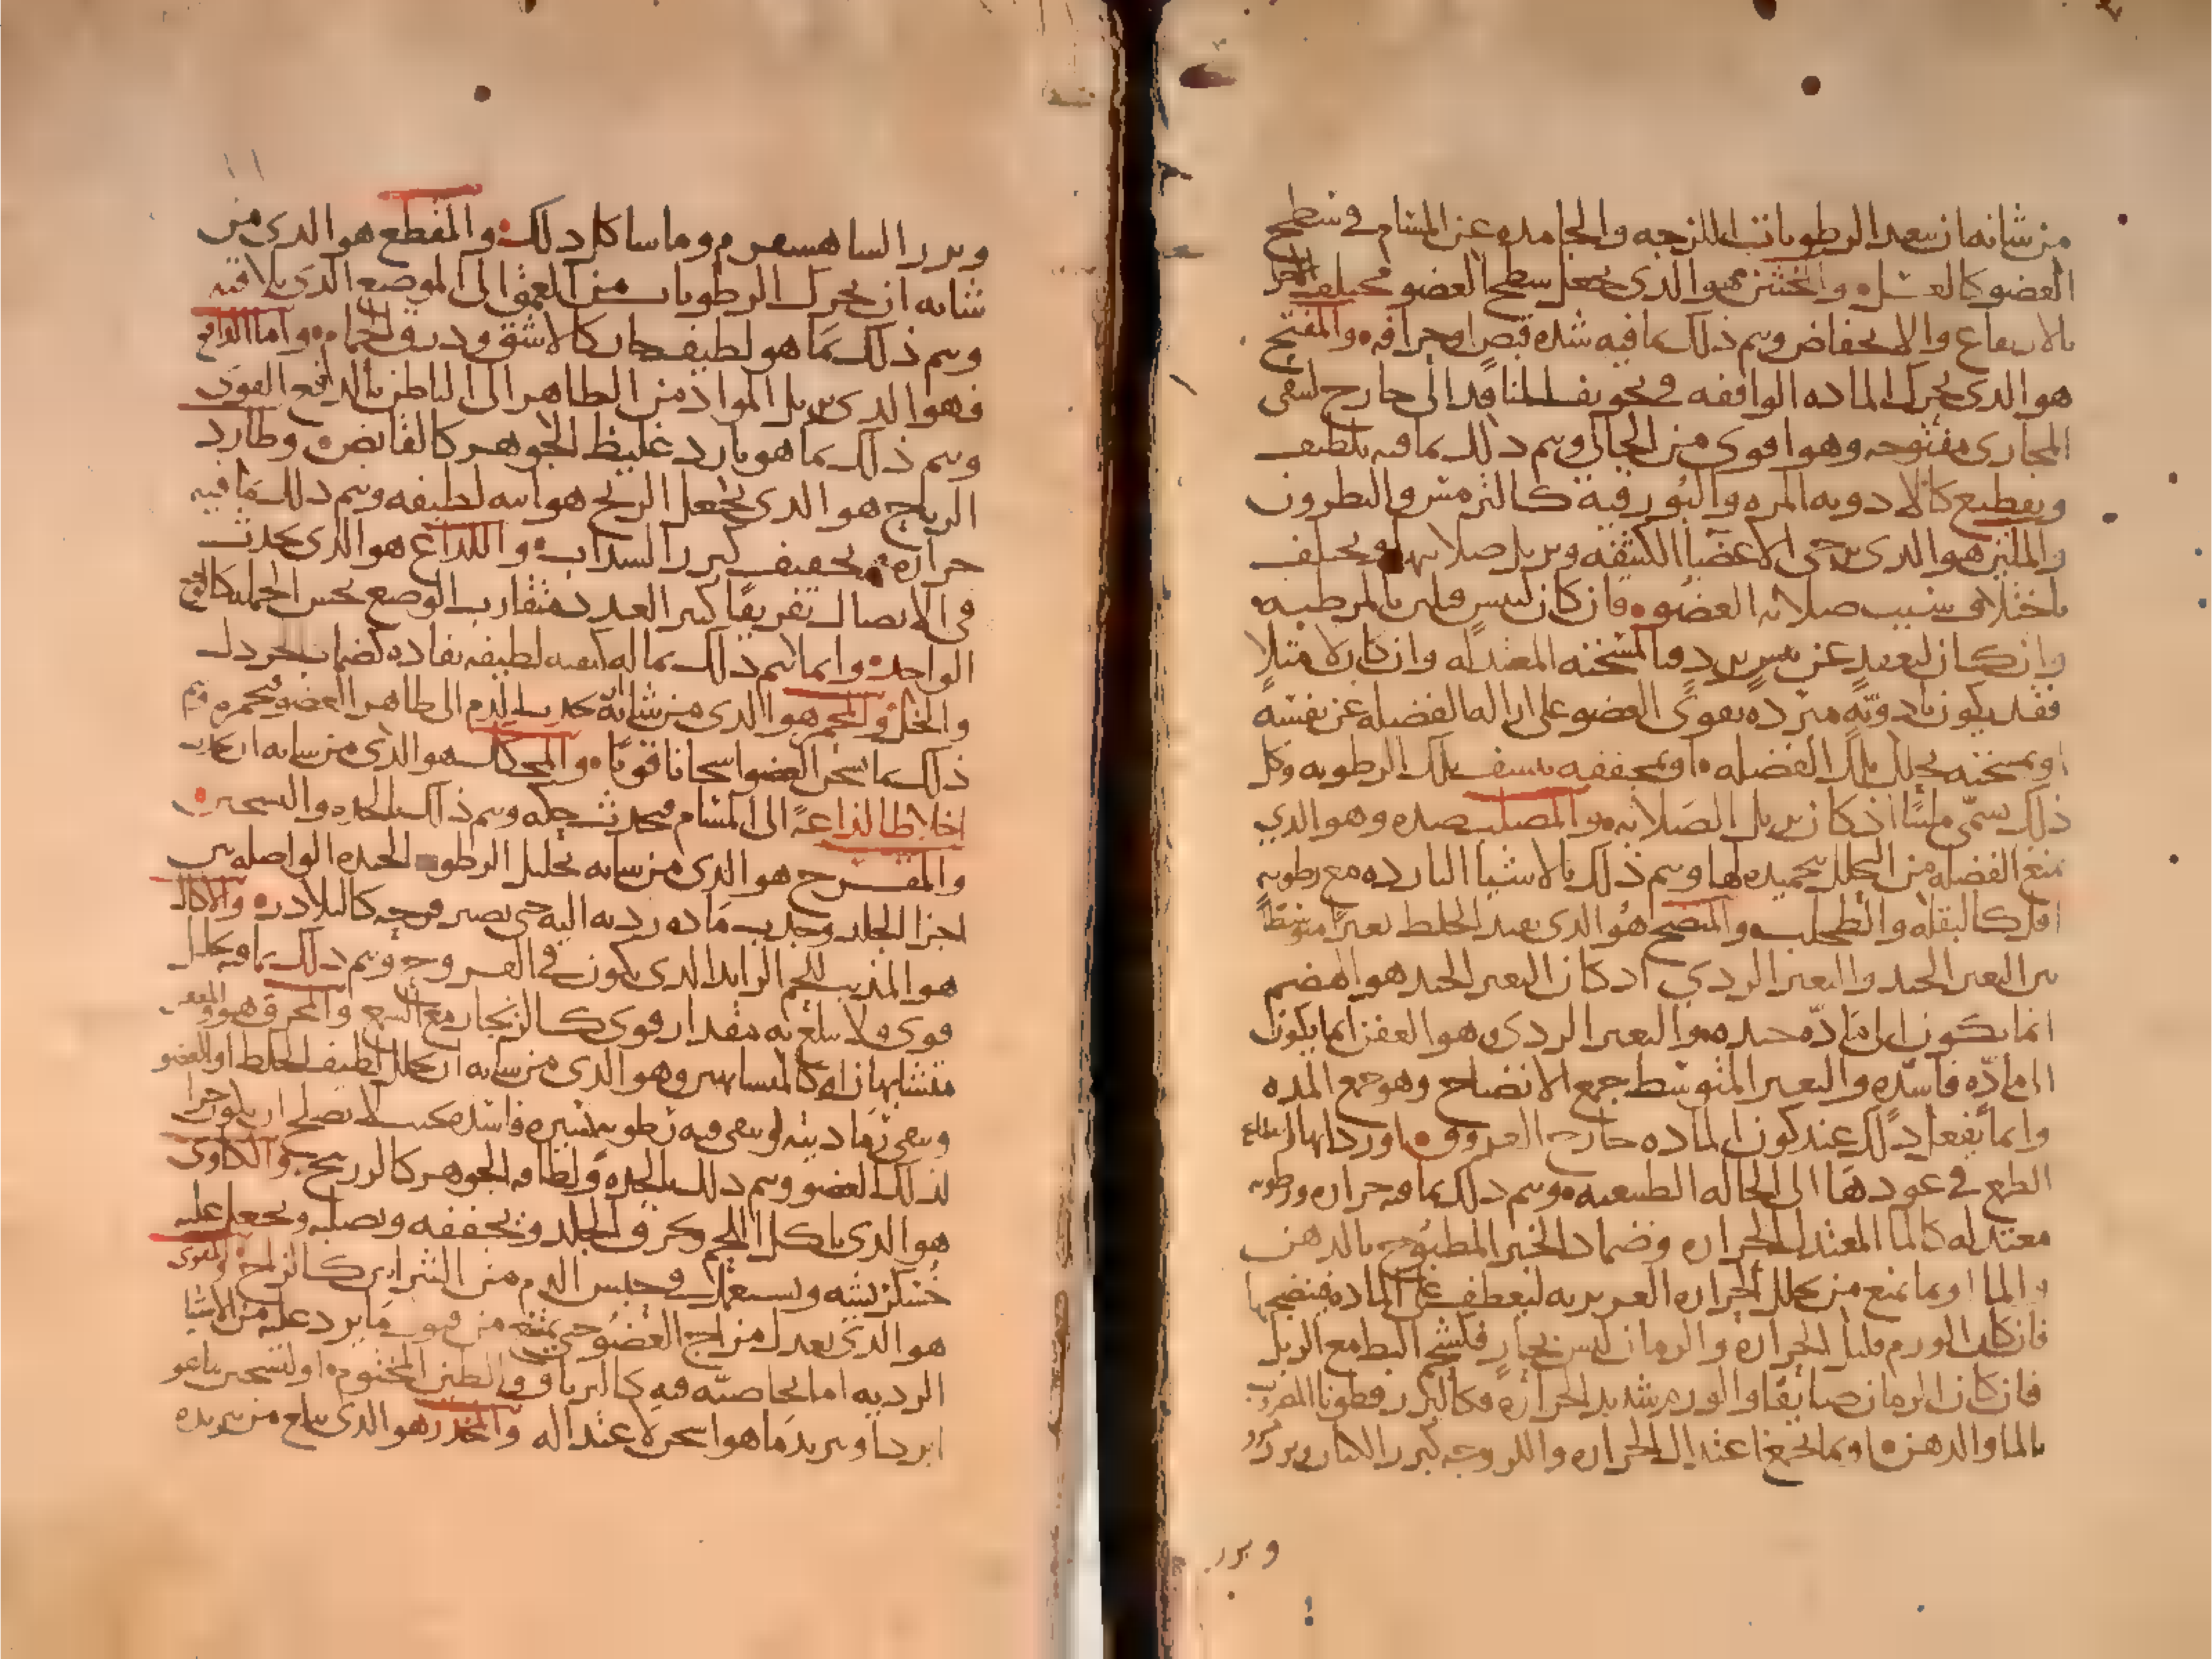 من شانه ان يبعد الرطوبات اللزجه والجامده عن المسام في سطح
العضو كالعسل والمخشن هو الذي يجعل سطح العضو مختلف الاجزا
بالارتفاع والانخفاض ويتم ذلك بما فيه شده قبض او حرافه والمفتح
هو الذي يحرك الماده الواقفه في تجويف المنافذ الى خارج لتبقى
المجاري مفتوحه وهو اقوى من الجالي ويتم ذلك بما فيه تلطيف
وتقطيع كالادويه المره والبورقية كالترمس والنطرون
والملين هو الذي يرخي الاعضا الكثيفه ويزيل صلابتها ويختلف
باختلاف سبب صلابه العضو فان كان ليبس فلين بالمرطبه
وان كان لتعقيد عن برد فبالمسخنه المعتدله وان كان لامتلا
فقد يكون بادويه مبرده تقوي العضو على ازاله الفضله عن نفسه
او بمسخنه تحلل تلك الفضله او بمجففه تنشف تلك الرطوبه وكل
ذلك يسمى ملينا اذ كان يزيل الصلابه والمصلب ضده وهو الذي
يمنع الفضله من التحلل بتجميده لها ويتم ذلك بالاشيا البارده مع رطوبه
اقل كالبقله والطحلب والمنضج هو الذي يفيد الخلط تغيرا متوسطا
بين التغير الجيد والتغير الردي اذ كان التغير الجيد هو الهضم
انما يكون الى ماده جيده والتغير الردي وهو العفن انما يكون
الى ماده فاسده والتغير المتوسط جمع الانضاج وهو جمع المده
وانما يفعل ذلك عند كون الماده خارج العروق او رداتها
الطبع في عودها الى الحاله الطبيعيه ويتم ذلك بما فيه حراره ورطوبه
معتدله كالما المعتدل الحراره وضماد الخبز المطبوخ بالدهن
والما او بما يمنع من تحلل الحراره الغريزيه لتعطف على الماده فينضجها
فان كان الورم قليل الحراره والزمان ليس بحار فكشحم البط مع الزبل
فان كان الزمان صايفا والورم شديد الحراره فكالبزر قطونا المضروب
بالما والدهن او بما يجمع اعتدال الحراره واللزوجه كبزر الكتان وبزر
وبزر
وبزر وما شاكل ذلك والمقطع هو الذي من
شانه ان يحرك الرطوبات من العمق الى الموضع الذي يلاقيه
ويتم ذلك بما هو لطيف حار كالاشق وذرق الحمام واما الدافع
فهو الذي يزيل المواد من الظاهر الى الباطن بالدافع القوي
ويتم ذلك بما هو بارد غليظ الجوهر كالقابض وطارد
الرياح هو الذي يجعل الريح هوائيه لطيفه ويتم ذلك بما فيه
حراره وتجفيف كبزر السداب واللذاع هو الذي يحدث
في الاتصال تفريقا كثير العدد متقارب الوضع يحس الجمله كالوجع
الواحد وانما يتم ذلك بما له كيفيه لطيفه نفاذه كضماد الخردل
والخل والمحمر هو الذي من شانه جذب الدم الى ظاهر العضو فيحمره ويتم
ذلك بما يسخن العضو اسخانا قويا والمحكك هو الذي من شانه ان يجذب
اخلاطا لذاعة الى المسام فيحدث حكه ويتم ذلك بالحده والتسخين
والمقرح هو الذي من شانه تحليل الرطوبه الجيده الواصله بين
اجزا الجلد وجذب ماده رديه اليه حتى يصير قرحه كالبلادر والاكال
هو المذيب للحم الزايد الذي يكون في القروح ويتم ذلك بما فيه تحليل
قوي ولا يبلغ به مقدار قوي كالزنجار مع الشمع والمحرق هو والمعفن
متشابهان لانه كالمتساويين وهو الذي من شانه ان يحلل لطيف الخلط او العضو
وتبقى رماديته او يبقى فيه رطوبه يسيره فاسده بحيث لا يصلح ان يكون جزا
لذلك العضو ويتم ذلك بالحده ولطافه الجوهر كالزرنيخ والكاوي
هو الذي ياكل اللحم ويحرق الجلد ويجففه ويصلبه ويجعل عليه
خشكريشه ويستعمل في حبس الدم من الشرايين كالزاج والمقوي
هو الذي يعدل مزاج العضو حتى يمتنع من قبول ما يرد عليه من الاشيا
الرديه اما بخاصيه فيه كالترياق والطين المختوم او لتسخين ما هو
ابرد او تبريد ما هو اسخن لاعتداله والمخدر هو الذي يبلغ من تبريده